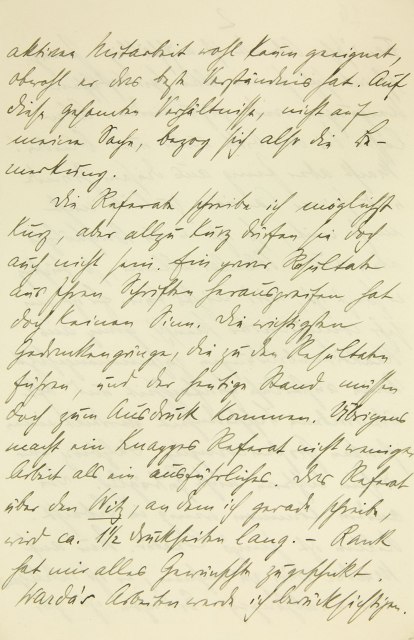 aktiven Mitarbeit wohl kaum geeignet,
obwohl er das beste Verständnis hat. Auf
diese gesamten Verhältnisse, nicht auf
meine Sache, bezog sich also die Be-
merkung.
Die Referate schreibe ich möglichst
kurz, aber allzu kurz dürfen sie doch
auch nicht sein. Ein paar Resultate
aus Ihren Schriften herausgreifen hat
doch keinen Sinn. Die wichtigsten
Gedankengänge, die zu den Resultaten
führen, und der heutige Stand müssen
doch zum Ausdruck kommen. Übrigens
macht ein knappes Referat nicht weniger
Arbeit als ein ausführliches. Das Referat
über den Witz, an dem ich gerade schreibe,
wird ca. 1½ Druckseiten lang. – Rank
hat mir alles Gewünschte zugeschickt.
Warda's Arbeiten werde ich berücksichtigen.